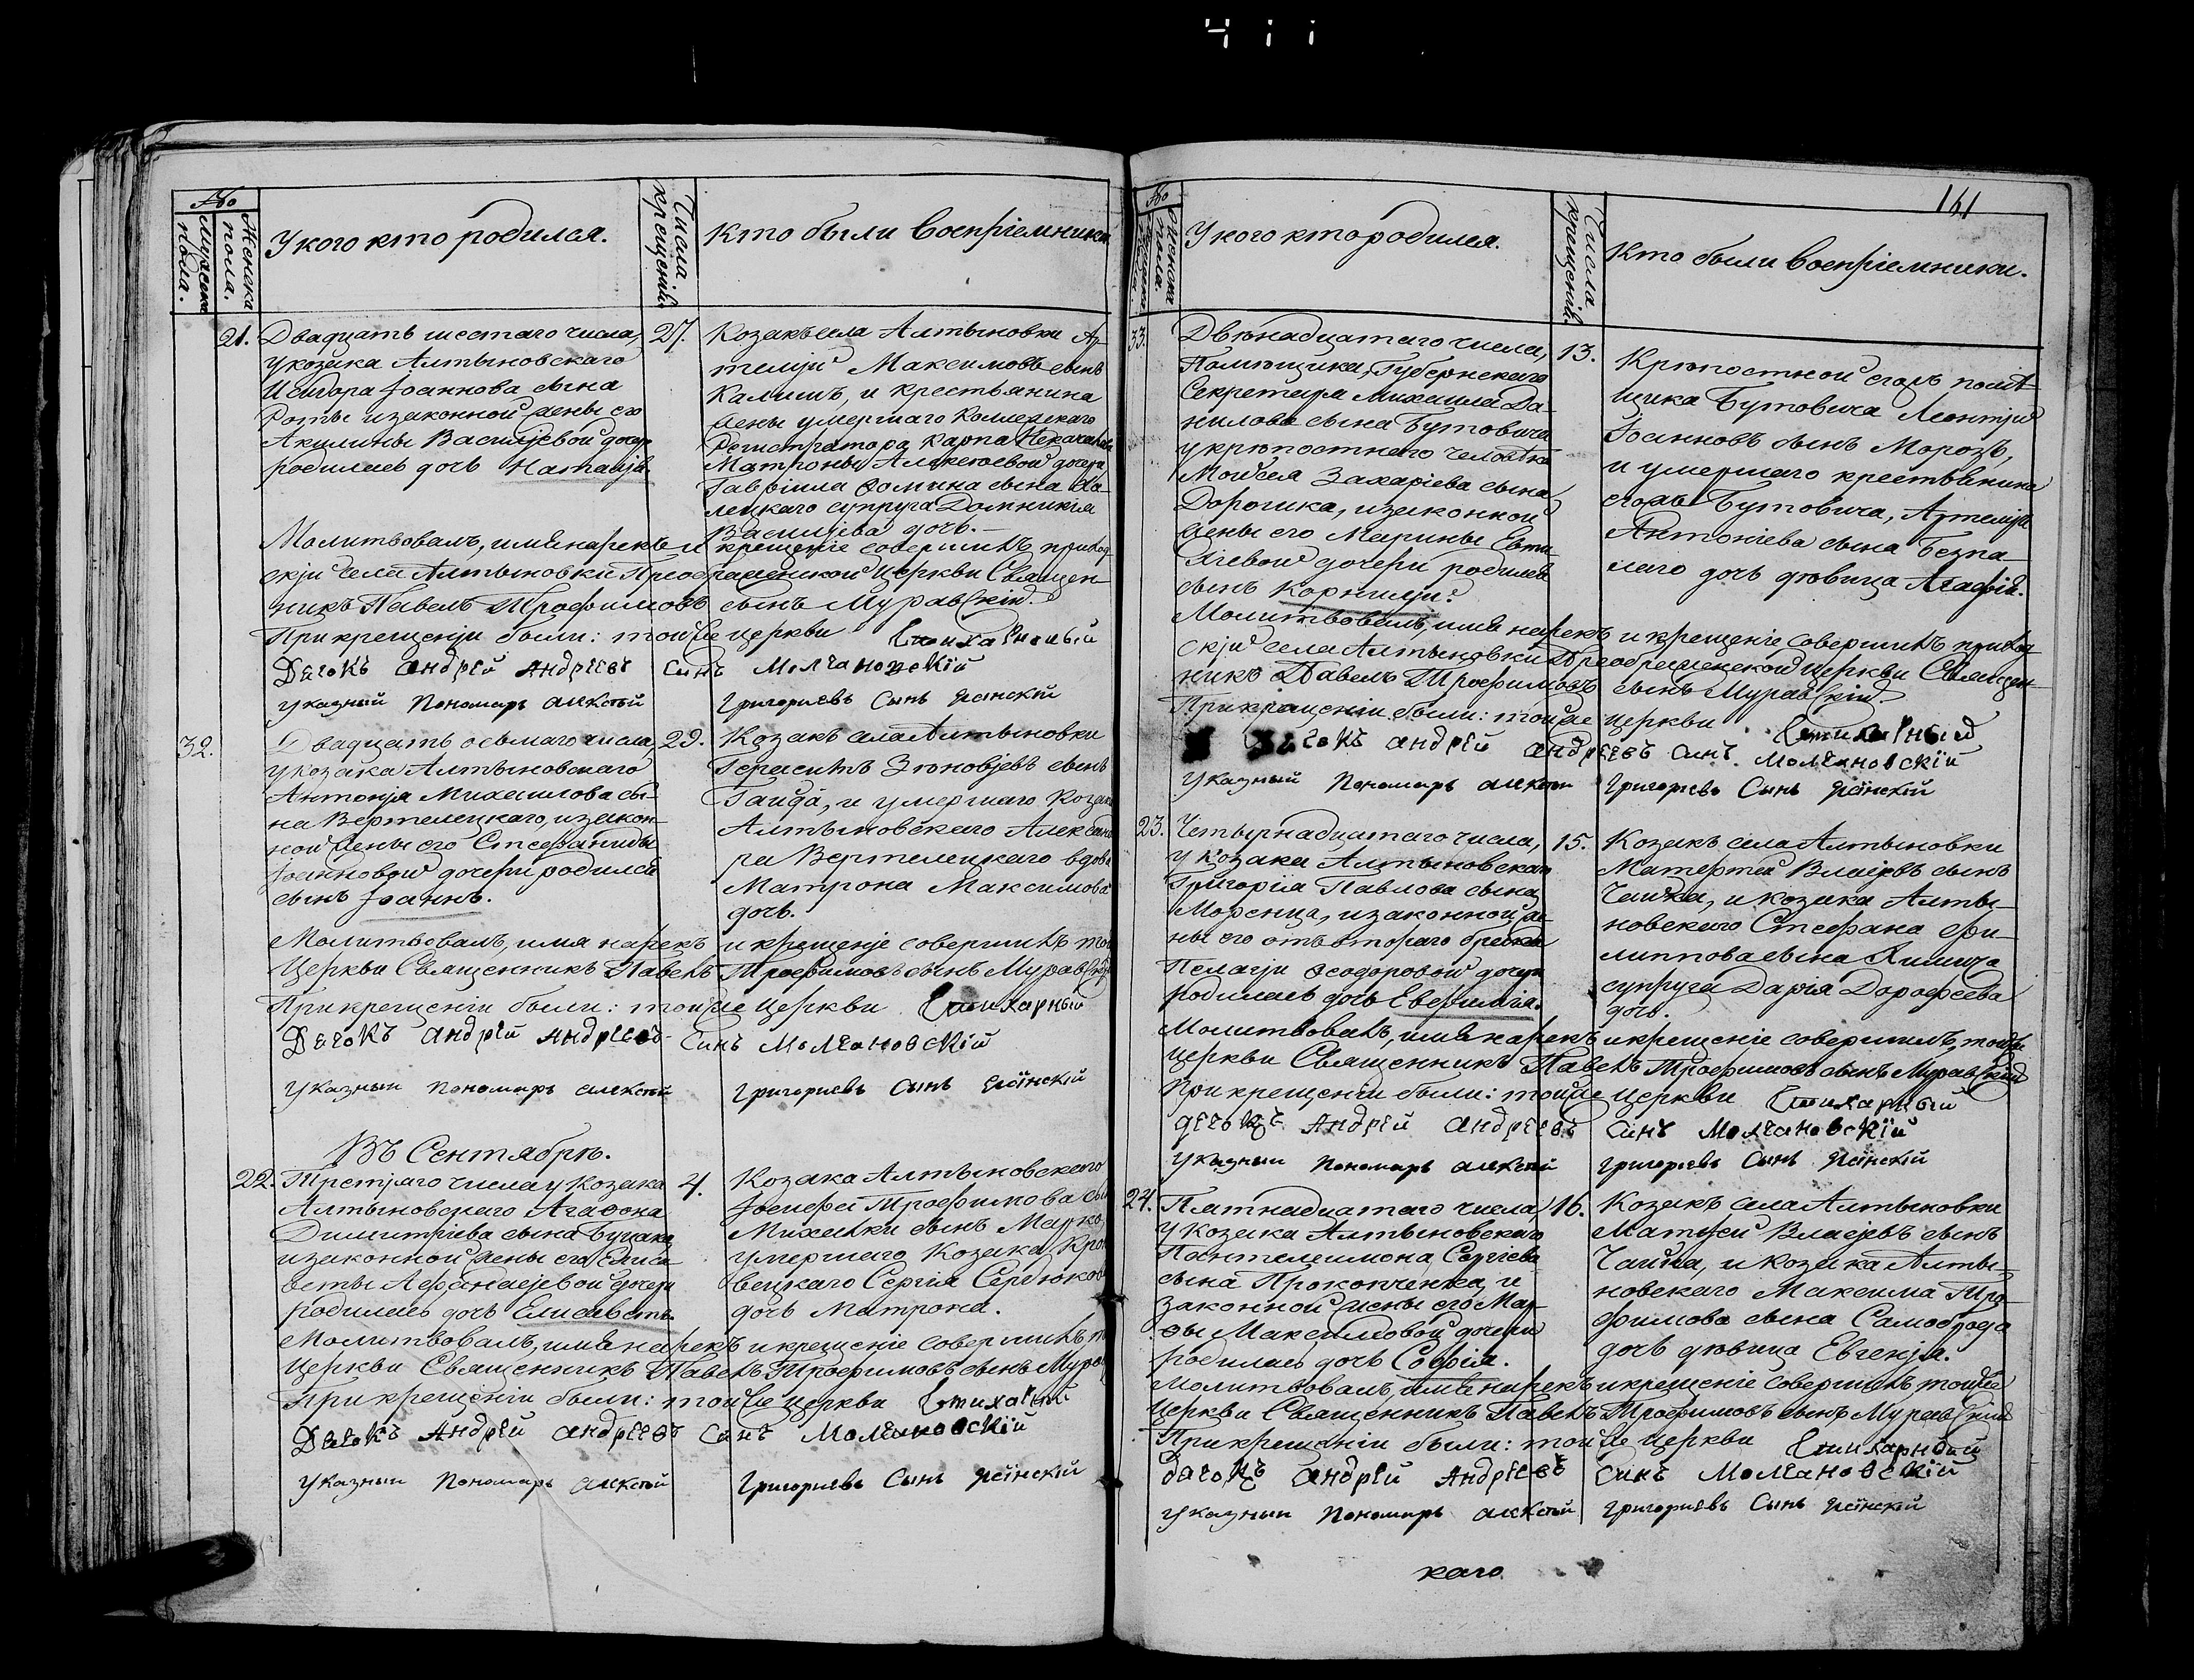 411
№
Мужеска пола.
Женска пола.
У кого кто родился.
Числа крещеній.
Кто были воспріемники
21.
Двадцать шестаго числа,
у козака Алтыновскаго
Исидора Іоаннова сына
Роты изаконной жены его
Акилины Василіевой дочери
родилась дочь Наталія.
27.
Козакъ села Алтыновки Ар-
темій Максимовъ сынъ
Калишъ, и крестьянина
жены умершаго Коллежскаго
Регистратора Карпа
Матроны Алексѣевой дочери,
Гавріила Ѳомина сына
лецкаго супруга Домникія
Василіева дочь.
Молитвовалъ, имя нарекъ и крещеніе совершилъ приход-
скій села Алтыновки Преображенской Церкви Священ-
никъ Павелъ Трофимовъ сынъ Муравскій.
При крещеніи были: тойже церкви Стихарный
Дячокъ Андрей Андреевъ Синъ Молчановскій
Указный Пономарь Алексѣй Григориевъ Сынъ Ясінскій
32.
Двадцать осьмаго числа,
у козака Алтыновскаго
Антонія Михаилова сы-
на Вертелецкаго, изакон-
ной жены его Стефаниды
Іоанновой дочери родился
сынъ Іоаннъ.
29.
Козакъ села Алтыновки
Герасимъ Зѣновіевъ сынъ
Гайда, и умершаго Козака
Алтыновскаго Александ
ра Вертелецкаго вдова
Матрона Максимова
дочь.
Молитвовалъ, имя нарекъ и крещеніе совершилъ той
Церкви Священникъ Павелъ Трофимовъ сынъ Муравскій
При крещеніи были: тойже церкви Стихарный
Дячокъ Андрей Андреевъ Синъ Молчановскій
Указный Пономарь Алексѣй Григориевъ Сынъ Ясінскій
Въ Сентябрѣ.
22.
Третіяго числа у Козака
Алтыновскаго Агаѳона
Димитріева сына Буцака
изаконной жены его Елиса-
веты Аѳанасіевой дочери
родилась дочь Елисаветъ.
4.
Козака Алтыновскаго
Іосифа Трофимова сы
Михейки сынъ Марко,
умершаго Козака Кро
вецкаго Сергія Сердюкова
дочь Матрона.
Молитвовалъ, имя нарекъ и крещеніе совершилъ то
Церкви Священникъ Павелъ Трофимовъ сынъ Мурав
При крещеніи были: тойже церкви Стихарный
Дячокъ Андрей Андреевъ Синъ Молчановскій
Указный Пономарь Алексѣй Григориевъ Сынъ Ясінскій
161
№
Мужеска пола.
Женска пола.
У кого кто родился.
Числа крещеній.
Кто были воспріемники.
33.
Двѣнадцатаго числа,
Помѣщика, Губернскаго
Секретаря Михаила Да-
нилова сына Бутовича
у крѣпостнаго человѣка
Мойсея Захаріева сына
Дорошка, изаконной
жены его Марины Евти-
хіевой дочери родился
сынъ Корнилій.
13.
Крѣпостной егожъ помѣ-
щика Бутовича Леонтій
Іоанновъ сынъ Морозъ,
и умершаго крестьянина
егожъ Бутовича, Артемія
Антоніева сына Безпа-
лаго дочь дѣвица Агафія.
Молитвовалъ, имя нарекъ и крещеніе совершилъ приход-
скій села Алтыновки Преображенской Церкви Священ-
никъ Павелъ Трофимовъ сынъ Муравскій.
При крещеніи были: тойже церкви Стихарный
Дячокъ Андрей Андреевъ Синъ Молчановскій
Указный Пономарь Алексѣй Григориевъ Сынъ Ясінскій
23.
Четырнадцатаго числа,
у козака Алтыновскаго
Григорія Павлова сына
Моренца, изаконной же-
ны его отъ втораго брака
Пелагіи Ѳеодоровой дочери
родилась дочь Евфимія.
15.
Козакъ села Алтыновки
Матѳей Власіевъ сынъ
Чайка, и козака Алты-
новскаго Стефана Фи-
липпова сына
супруга Дарія Дорофеева
дочь.
Молитвовалъ, имя нарекъ и крещеніе совершилъ, тойже
церкви Священникъ Павелъ Трофимовъ сынъ Муравскій
При крещеніи были: тойже церкви Стихарный
дячокъ Андрей Андреевъ Синъ Молчановскій
Указный Пономарь Алексѣй Григориевъ Сынъ Ясінскій
24.
Пятнадцатаго числа
у козака Алтыновскаго
Пантелеимона Сергіева
сына Прокопченка, и
законной жены его Мар-
ѳы Максимовой дочери
родилась дочь Софія.
16.
Козакъ села Алтыновки
Матѳей Власіевъ сынъ
Чайка, и козака Алты-
новскаго Максима Тро-
фимова сына Самоброда
дочь дѣвица Евгенія.
Молитвовалъ, имя нарекъ и крещеніе совершилъ, тойже
Церкви Священникъ Павелъ Трофимовъ сынъ Муравскій
При крещеніи были: тойже церкви Стихарный
дячокъ Андрей Андреевъ Синъ Молчановскій
Указный Пономарь Алексѣй Григориевъ Сынъ Ясінскій
каго